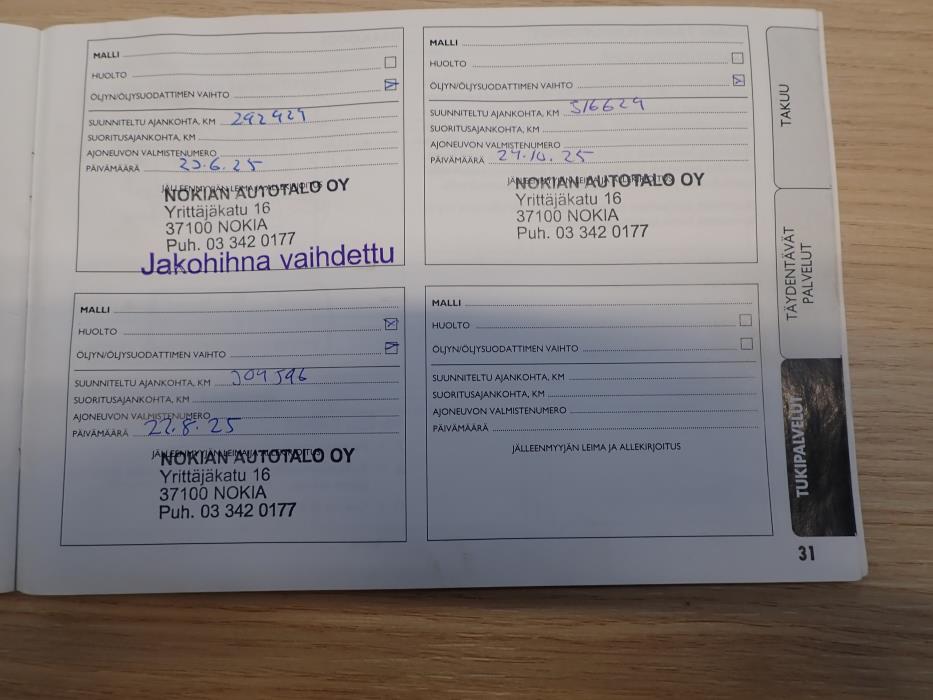 MALLI
HUOLTO
ÖLJYN/ÖLJYSUODATTIMEN VAIHTO
SUUNNITELTU AJANKOHTA, KM 292929
SUORITUSAJANKOHTA, KM
AJONEUVON VALMISTENUMERO
PÄIVÄMÄÄRÄ 23.6.25
JÄLLEENMYYJÄN LEIMA JA ALLEKIRJOITUS
NOKIAN AUTOTALO OY
Yrittäjäkatu 16
37100 NOKIA
Puh. 03 342 0177
Jakohihna vaihdettu
MALLI
HUOLTO
ÖLJYN/ÖLJYSUODATTIMEN VAIHTO
SUUNNITELTU AJANKOHTA, KM 316629
SUORITUSAJANKOHTA, KM
AJONEUVON VALMISTENUMERO
PÄIVÄMÄÄRÄ 24.10.25
JÄLLEENMYYJÄN LEIMA JA ALLEKIRJOITUS
NOKIAN AUTOTALO OY
Yrittäjäkatu 16
37100 NOKIA
Puh. 03 342 0177
MALLI
HUOLTO
ÖLJYN/ÖLJYSUODATTIMEN VAIHTO
SUUNNITELTU AJANKOHTA, KM 304596
SUORITUSAJANKOHTA, KM
AJONEUVON VALMISTENUMERO
PÄIVÄMÄÄRÄ 22.8.25
JÄLLEENMYYJÄN LEIMA JA ALLEKIRJOITUS
NOKIAN AUTOTALO OY
Yrittäjäkatu 16
37100 NOKIA
Puh. 03 342 0177
MALLI
HUOLTO
ÖLJYN/ÖLJYSUODATTIMEN VAIHTO
SUUNNITELTU AJANKOHTA, KM
SUORITUSAJANKOHTA, KM
AJONEUVON VALMISTENUMERO
PÄIVÄMÄÄRÄ
JÄLLEENMYYJÄN LEIMA JA ALLEKIRJOITUS
TAKUU
TÄYDENTÄVÄT
PALVELUT
TUKIPALVELUT
31